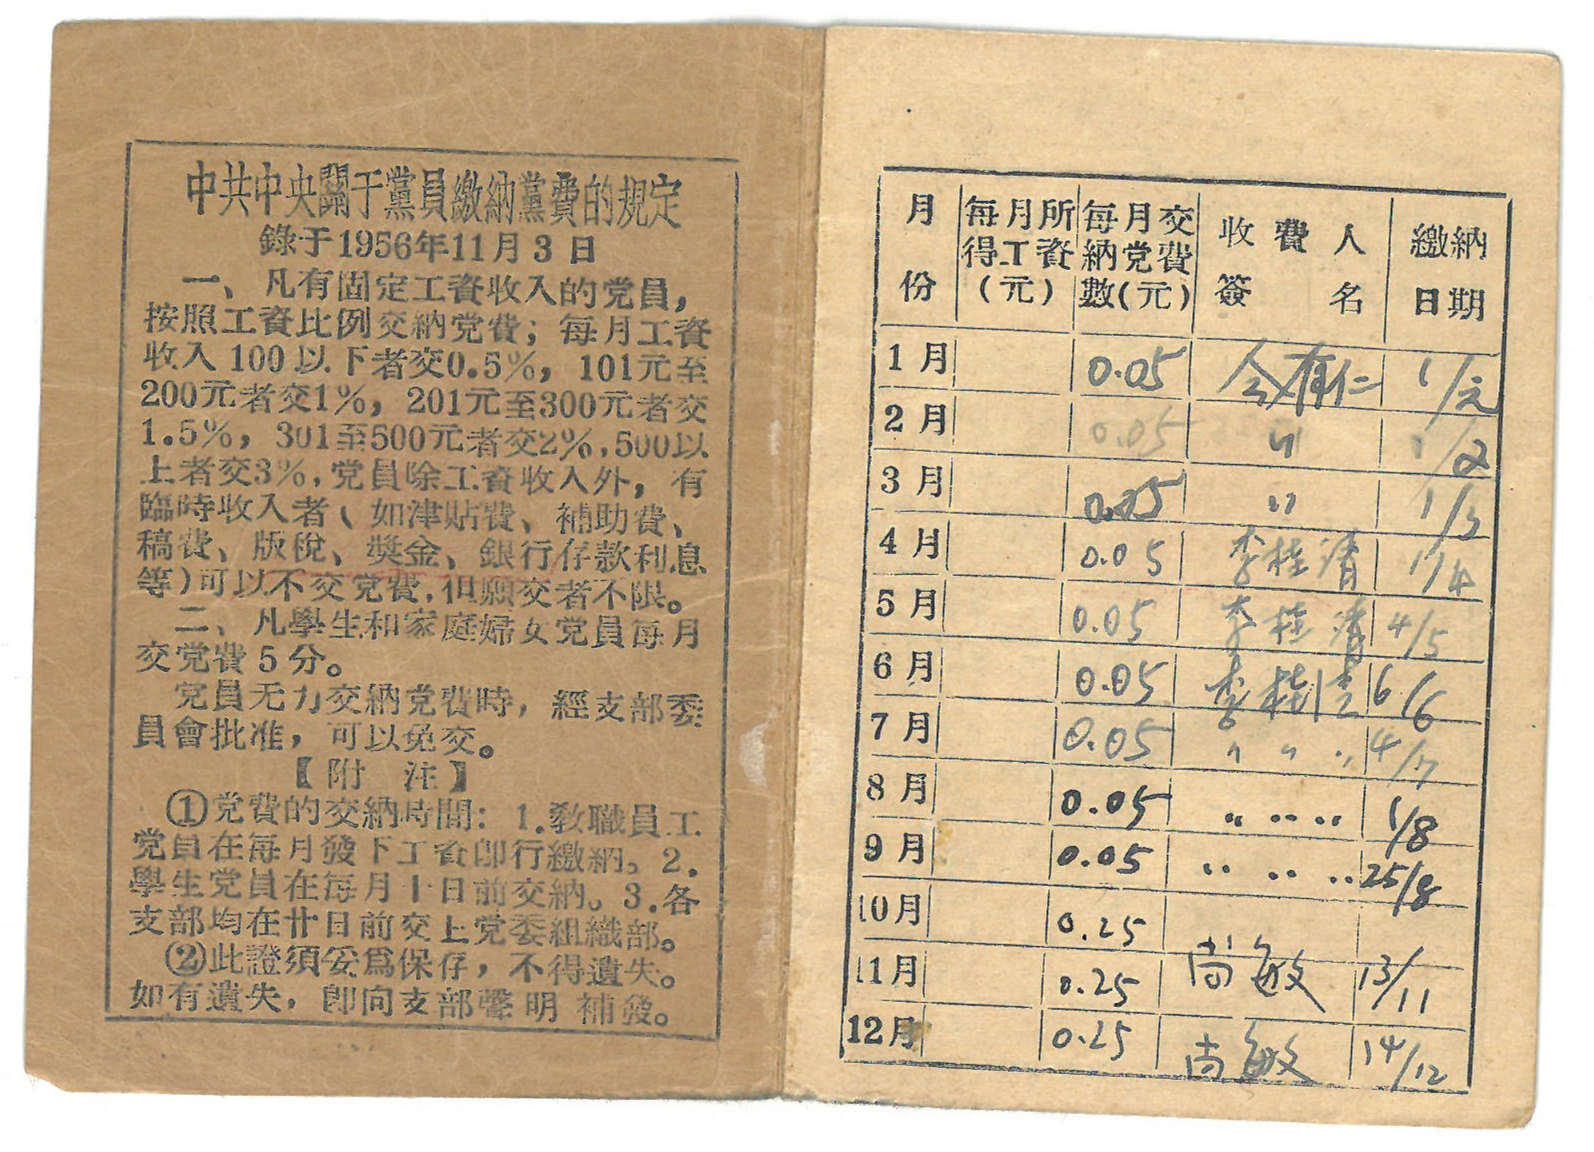 中共中央關于黨員繳納黨費的規定
錄于1956年11月3日
一、凡有固定工資收入的党員，
按照工資比例交納党費；每月工資
收入100以下者交0.5%，101元至
200元者交1%，201元至300元者交
1.5%，301至500元者交2%，500以
上者交3%，党員除工資收入外，有
臨時收入者（如津貼費、補助費、
稿費、版稅、獎金、銀行存款利息
等）可以不交党費，但願交者不限。
二、凡學生和家庭婦女党員每月
交党費5分。
党員无力交納党費時，經支部委
員會批准，可以免交。
【附 注】
①党費的交納時間：1.教職員工
党員在每月發下工資卽行繳納。2.
學生党員在每月十日前交納。3.各
支部均在廿日前交上党委組織部。
②此證須妥爲保存，不得遺失。
如有遺失，卽向支部聲明補發。
月份 每月所得工資(元) 每月交納党費數(元) 收費人簽名 繳納日期
1月 0.05 仝有仁 1/元
2月 0.05 〃 1/2
3月 0.05 〃 1/3
4月 0.05 李桂清 17/4
5月 0.05 李桂清 4/5
6月 0.05 李桂清 6/6
7月 0.05 〃 〃 〃 4/7
8月 0.05 〃 〃 〃 1/8
9月 0.05 〃 〃 〃 25/8
10月 0.25
11月 0.25 尚敏 13/11
12月 0.25 尚敏 14/12